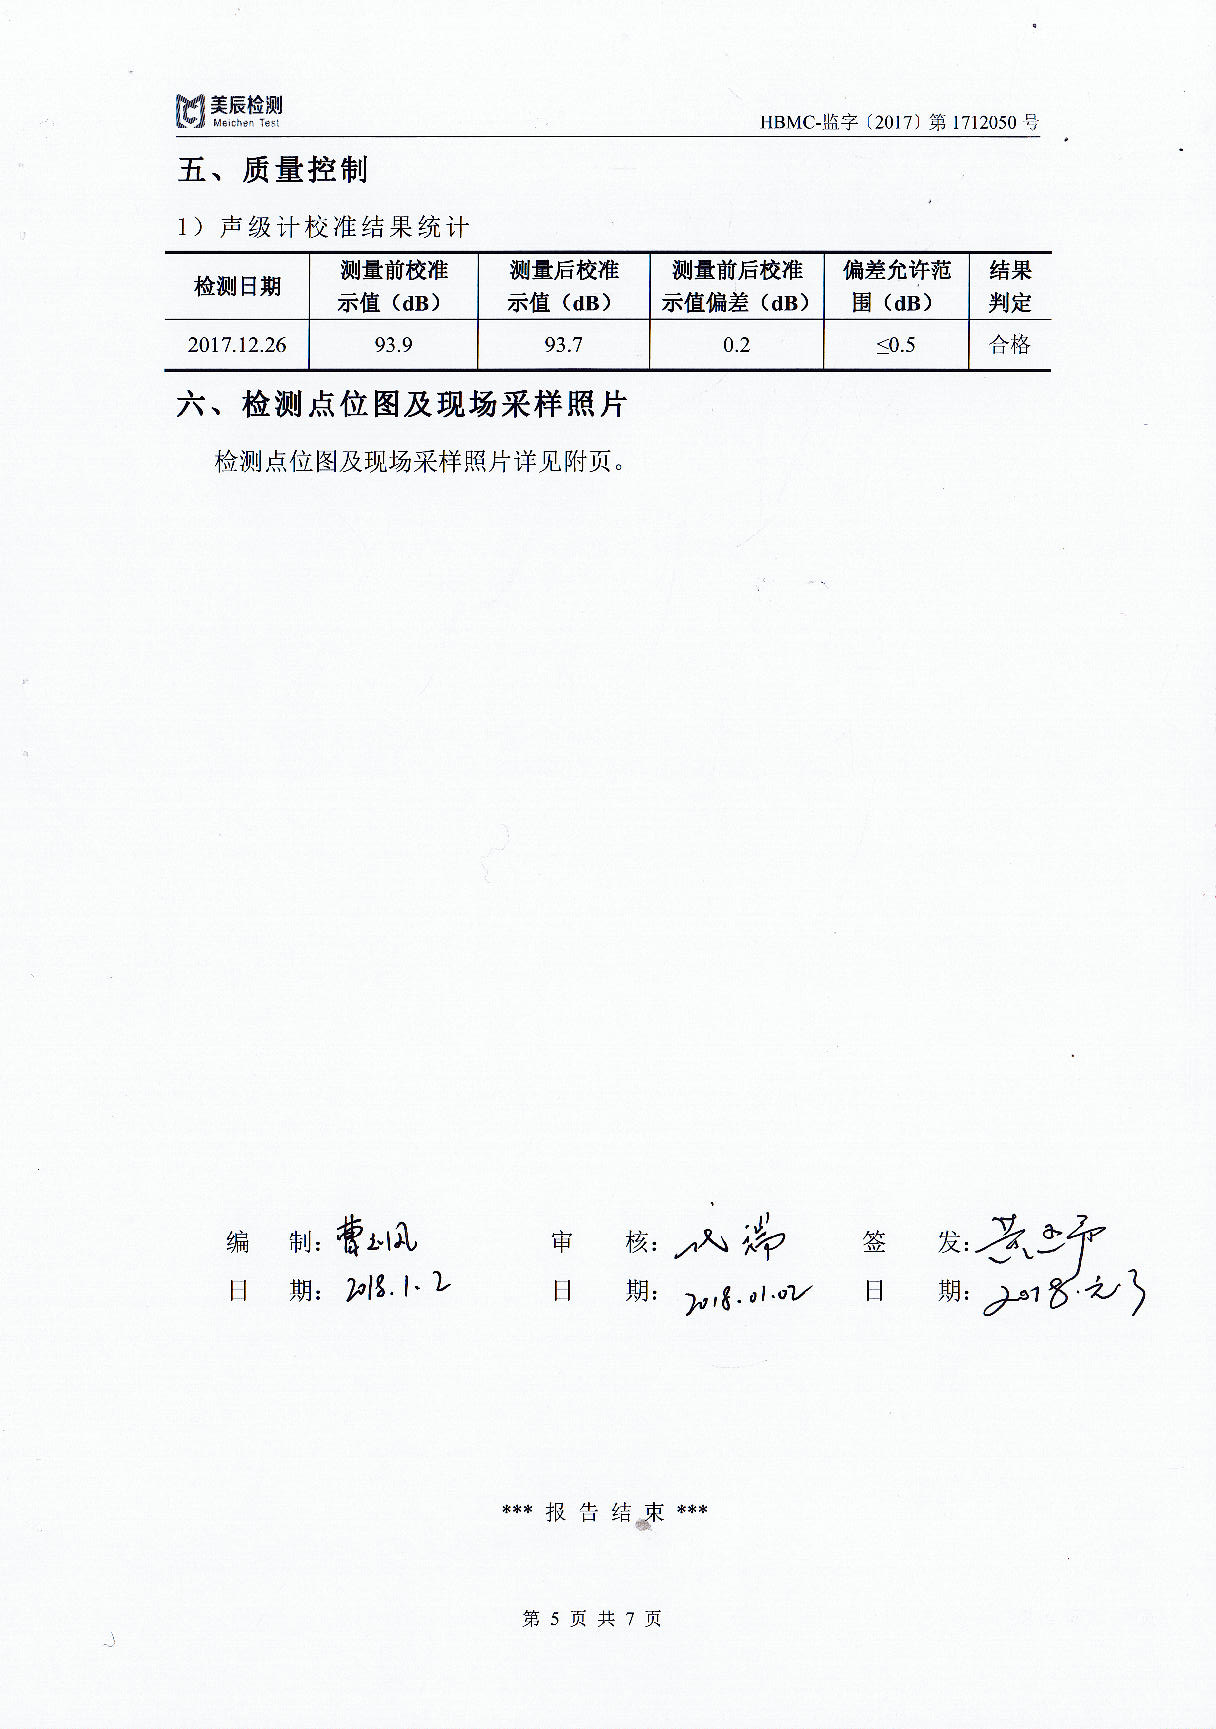 美辰检测
Meichen Test
HBMC-监字〔2017〕第 1712050 号
五、质量控制
1）声级计校准结果统计
检测日期 测量前校准示值（dB） 测量后校准示值（dB） 测量前后校准示值偏差（dB） 偏差允许范围（dB） 结果判定
2017.12.26 93.9 93.7 0.2 ≤0.5 合格
六、检测点位图及现场采样照片
检测点位图及现场采样照片详见附页。
编 制： 审 核： 签 发：
日 期：2018.1.2 日 期：2018.01.02 日 期：2018.元.3
*** 报 告 结 束 ***
第 5 页 共 7 页